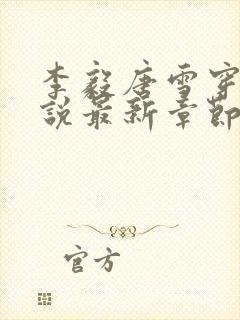 李毅唐雪穿
说最新章节
官方